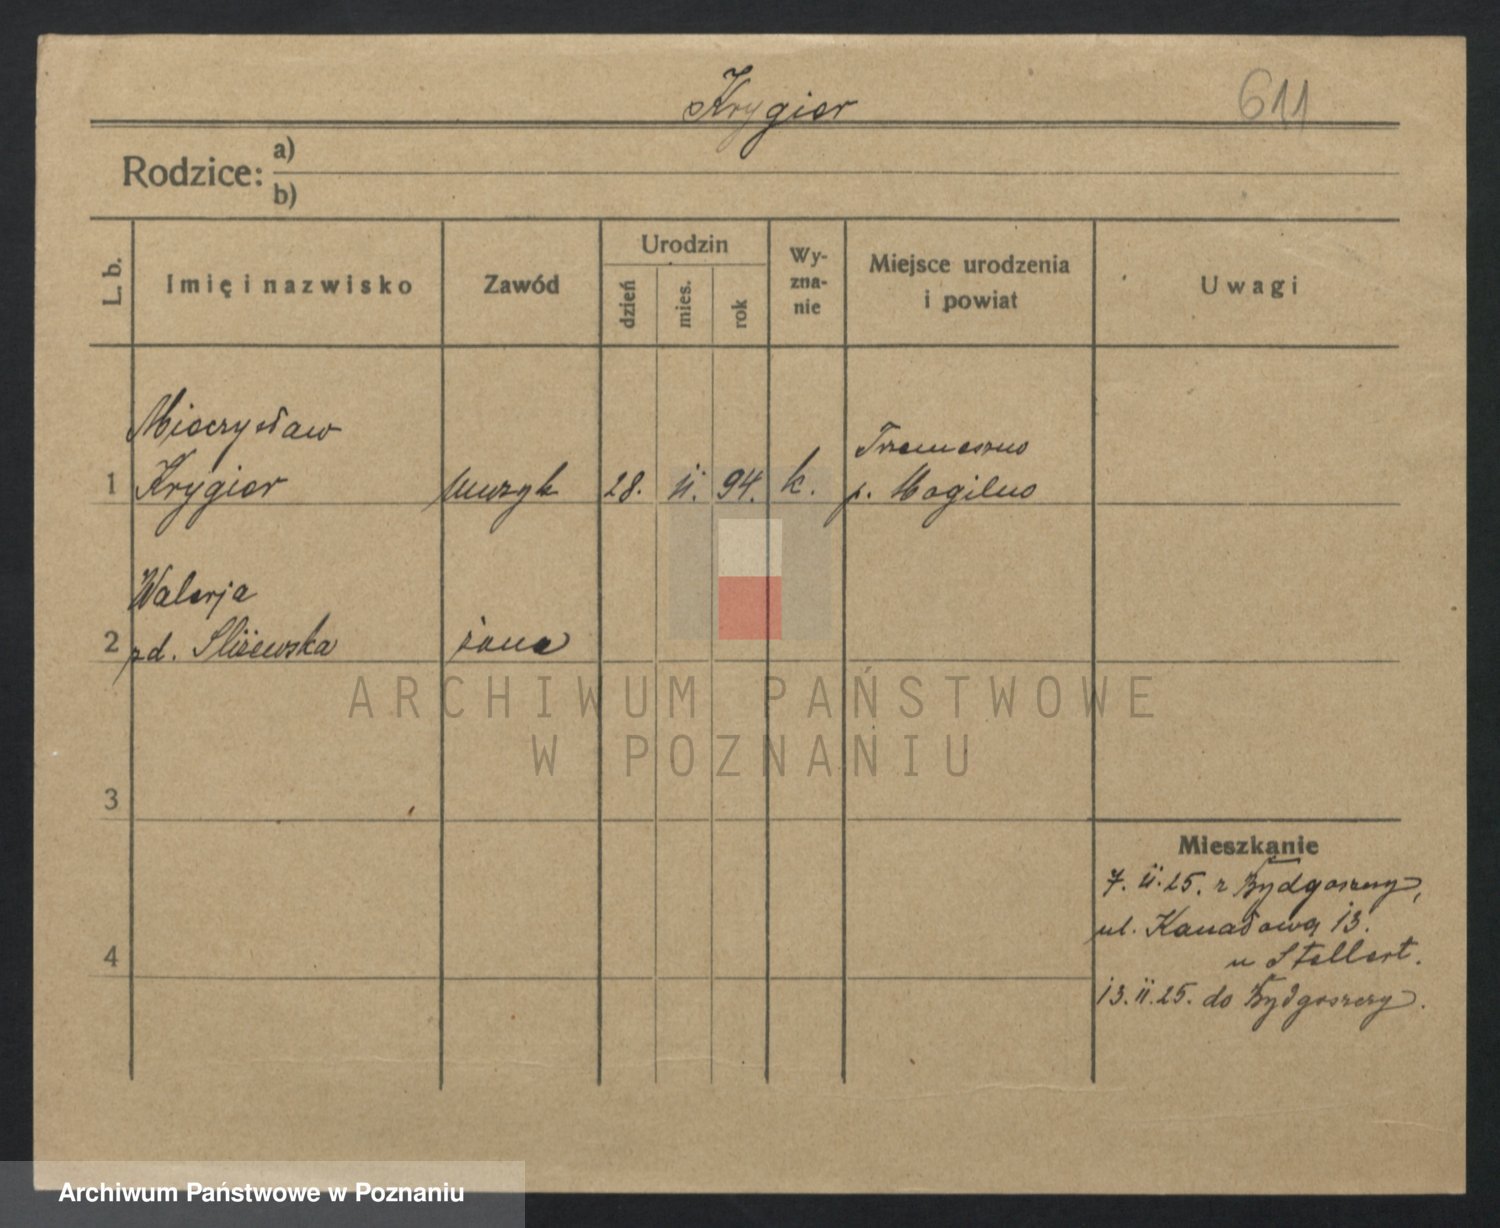 Krygier
611
Rodzice: a)
b)
L. b.
Imię i nazwisko
Zawód
Urodzin
dzień
mies.
rok
Wy-
zna-
nie
Miejsce urodzenia
i powiat
Uwagi
Mieczysław
Trzemeszno
1 Krygier muzyk 28. II. 94. k. p. Mogilno
Walerja
2 zd. Sliżewska żona
ARCHIWUM PAŃSTWOWE
W POZNANIU
3
Mieszkanie
7. II. 25. z Bydgoszczy,
ul. Kanałowa 13.
4
u Stellert.
13. II. 25. do Bydgoszczy.
Archiwum Państwowe w Poznaniu